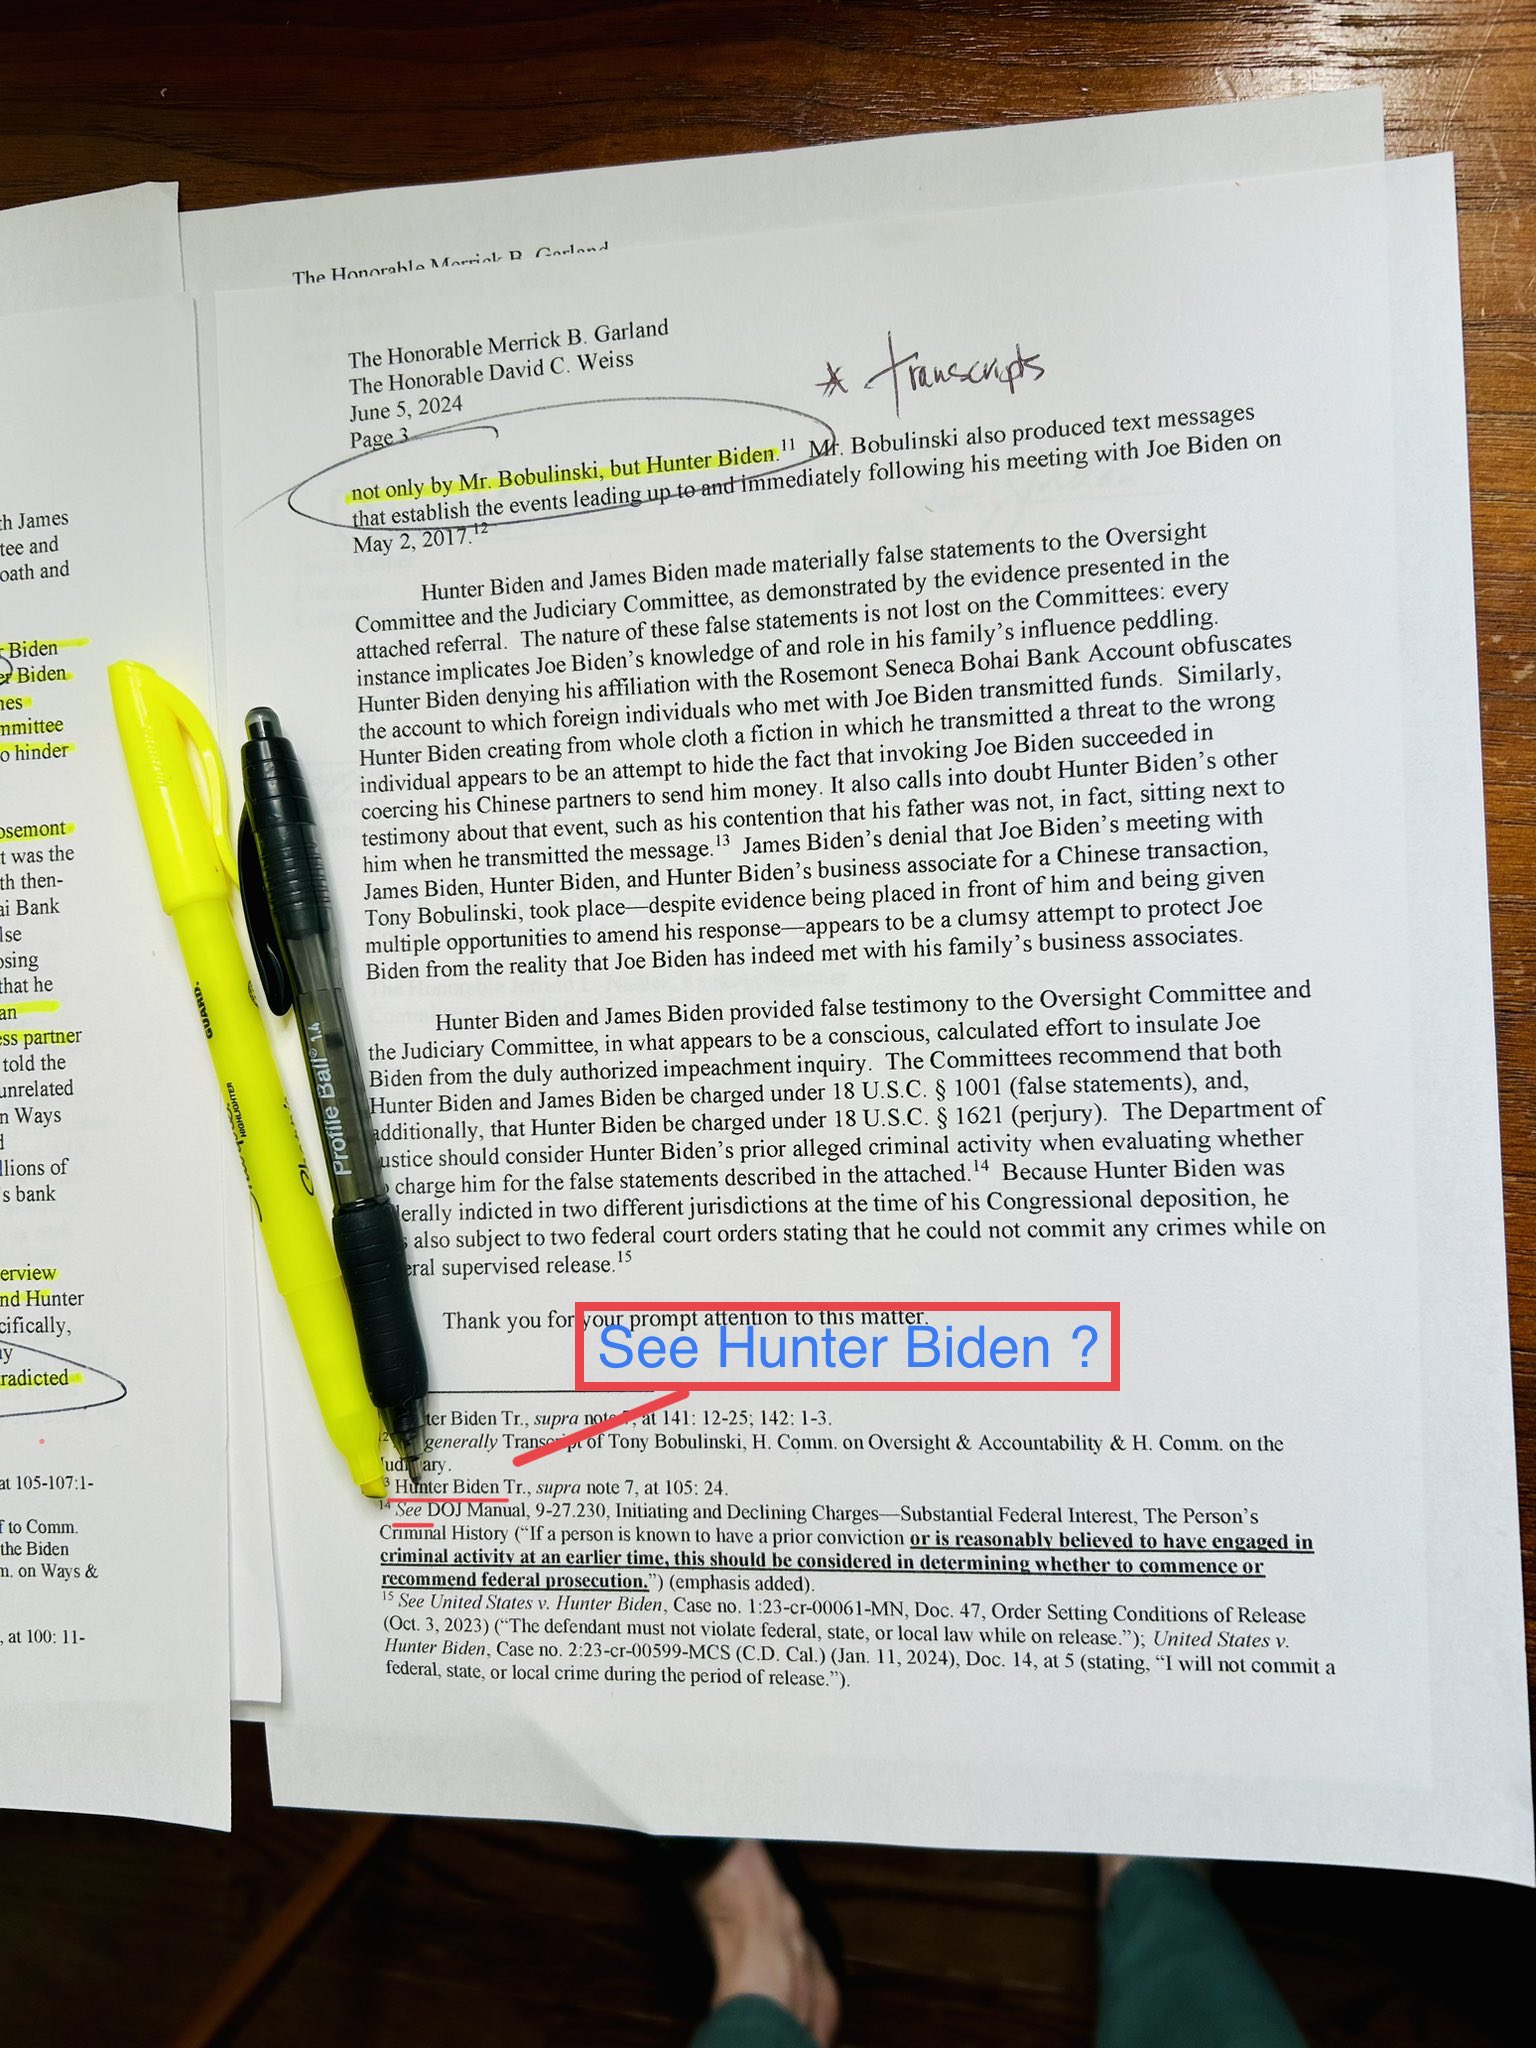 th James
tee and
oath and
Biden
Biden
mmittee
o hinder
osemont
t was the
th then-
ai Bank
lse
osing
that he
an
ess partner
told the
unrelated
n Ways
llions of
s bank
erview
nd Hunter
cifically,
radicted
at 105-107:1-
f to Comm.
the Biden
m. on Ways &
, at 100: 11-
The Honorable Merrick B. Garland
The Honorable Merrick B. Garland
The Honorable David C. Weiss
June 5, 2024
Page 3
* transcripts
not only by Mr. Bobulinski, but Hunter Biden.11 Mr. Bobulinski also produced text messages
that establish the events leading up to and immediately following his meeting with Joe Biden on
May 2, 2017.12
Hunter Biden and James Biden made materially false statements to the Oversight
Committee and the Judiciary Committee, as demonstrated by the evidence presented in the
attached referral. The nature of these false statements is not lost on the Committees: every
instance implicates Joe Biden's knowledge of and role in his family's influence peddling.
Hunter Biden denying his affiliation with the Rosemont Seneca Bohai Bank Account obfuscates
the account to which foreign individuals who met with Joe Biden transmitted funds. Similarly,
Hunter Biden creating from whole cloth a fiction in which he transmitted a threat to the wrong
individual appears to be an attempt to hide the fact that invoking Joe Biden succeeded in
coercing his Chinese partners to send him money. It also calls into doubt Hunter Biden's other
testimony about that event, such as his contention that his father was not, in fact, sitting next to
him when he transmitted the message.13 James Biden's denial that Joe Biden's meeting with
James Biden, Hunter Biden, and Hunter Biden's business associate for a Chinese transaction,
Tony Bobulinski, took place—despite evidence being placed in front of him and being given
multiple opportunities to amend his response—appears to be a clumsy attempt to protect Joe
Biden from the reality that Joe Biden has indeed met with his family's business associates.
Hunter Biden and James Biden provided false testimony to the Oversight Committee and
the Judiciary Committee, in what appears to be a conscious, calculated effort to insulate Joe
Biden from the duly authorized impeachment inquiry. The Committees recommend that both
Hunter Biden and James Biden be charged under 18 U.S.C. § 1001 (false statements), and,
additionally, that Hunter Biden be charged under 18 U.S.C. § 1621 (perjury). The Department of
ustice should consider Hunter Biden's prior alleged criminal activity when evaluating whether
charge him for the false statements described in the attached.14 Because Hunter Biden was
erally indicted in two different jurisdictions at the time of his Congressional deposition, he
s also subject to two federal court orders stating that he could not commit any crimes while on
eral supervised release.15
Thank you for your prompt attention to this matter.
See Hunter Biden ?
ter Biden Tr., supra note 7, at 141: 12-25; 142: 1-3.
12 generally Transcript of Tony Bobulinski, H. Comm. on Oversight & Accountability & H. Comm. on the
Judiciary.
3 Hunter Biden Tr., supra note 7, at 105: 24.
14 See DOJ Manual, 9-27.230, Initiating and Declining Charges—Substantial Federal Interest, The Person's
Criminal History ("If a person is known to have a prior conviction or is reasonably believed to have engaged in
criminal activity at an earlier time, this should be considered in determining whether to commence or
recommend federal prosecution.") (emphasis added).
15 See United States v. Hunter Biden, Case no. 1:23-cr-00061-MN, Doc. 47, Order Setting Conditions of Release
(Oct. 3, 2023) ("The defendant must not violate federal, state, or local law while on release."); United States v.
Hunter Biden, Case no. 2:23-cr-00599-MCS (C.D. Cal.) (Jan. 11, 2024), Doc. 14, at 5 (stating, "I will not commit a
federal, state, or local crime during the period of release.").
GUARD.
HIGHLIGHTER
Profile Ball® 1.4